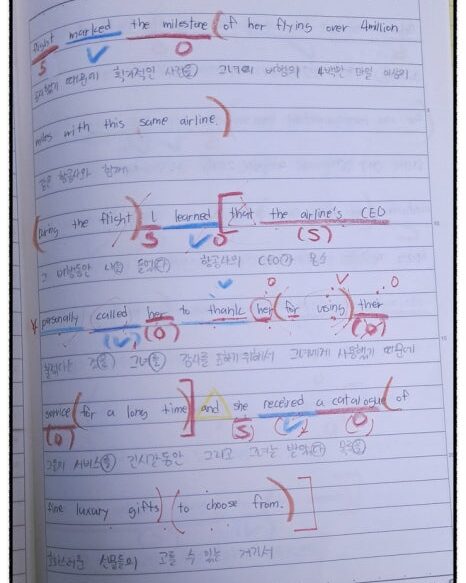 flight marked the milestone (of her flying over 4million
S V O
때문에 획기적인 사건을 그녀의 비행의 4백만 마일 이상의
miles with this same airline.)
같은 항공사와 함께
(During the flight) I learned [that the airline's CEO
S V O (S)
그 비행동안 나는 들었다 항공사의 CEO가
V O V O
* personally called her to thank her (for using) ther
(V) (O) (O)
그녀를 감사를 표하기위해서 그녀에게 사용했기 때문에
service (for a long time)] and she received a catalogue (of
(O) (S) (V) (O)
그들의 서비스를 긴시간동안 그리고 그녀는 받았다 목록을
fine luxury gifts) (to choose from.)]
선물들의 고를 수 있는